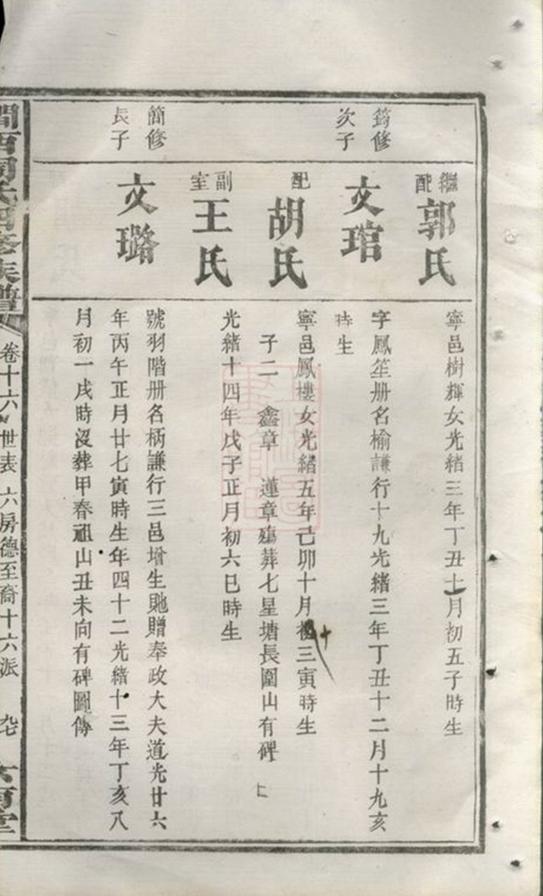 繼配 郭氏
寧邑樹輝女光緒三年丁丑十月初五子時生
筠修次子
文琯
字鳳笙册名榆謙行十九光緒三年丁丑十二月十九亥
時生
配 胡氏
寧邑鳳樓女光緒五年己卯十月初三寅時生
子二 鑫章 蓮章殤葬七星塘長圍山有碑
副室 王氏
光緒十四年戊子正月初六巳時生
簡修長子
文璐
號羽階册名柄謙行三邑增生貤贈奉政大夫道光廿六
年丙午正月廿七寅時生年四十二光緒十三年丁亥八
月初一戌時沒葬甲春祖山丑未向有碑圖傳
卷十六 世表 六房德至裔十六派